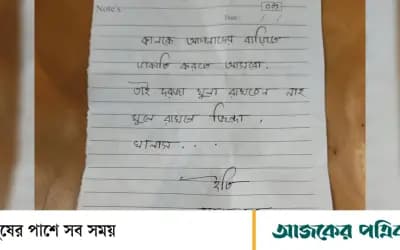 Note's
Date : / /
কালকে আপনাদের বাড়িতে
ডাকাতি করতে আসবো.
তাই দরজা খুলা রাখবেন না
খুলে রাখলে জিন্দা.
খালাস . . .
ইতি
ষের পাশে সব সময়
আজকের পত্রি